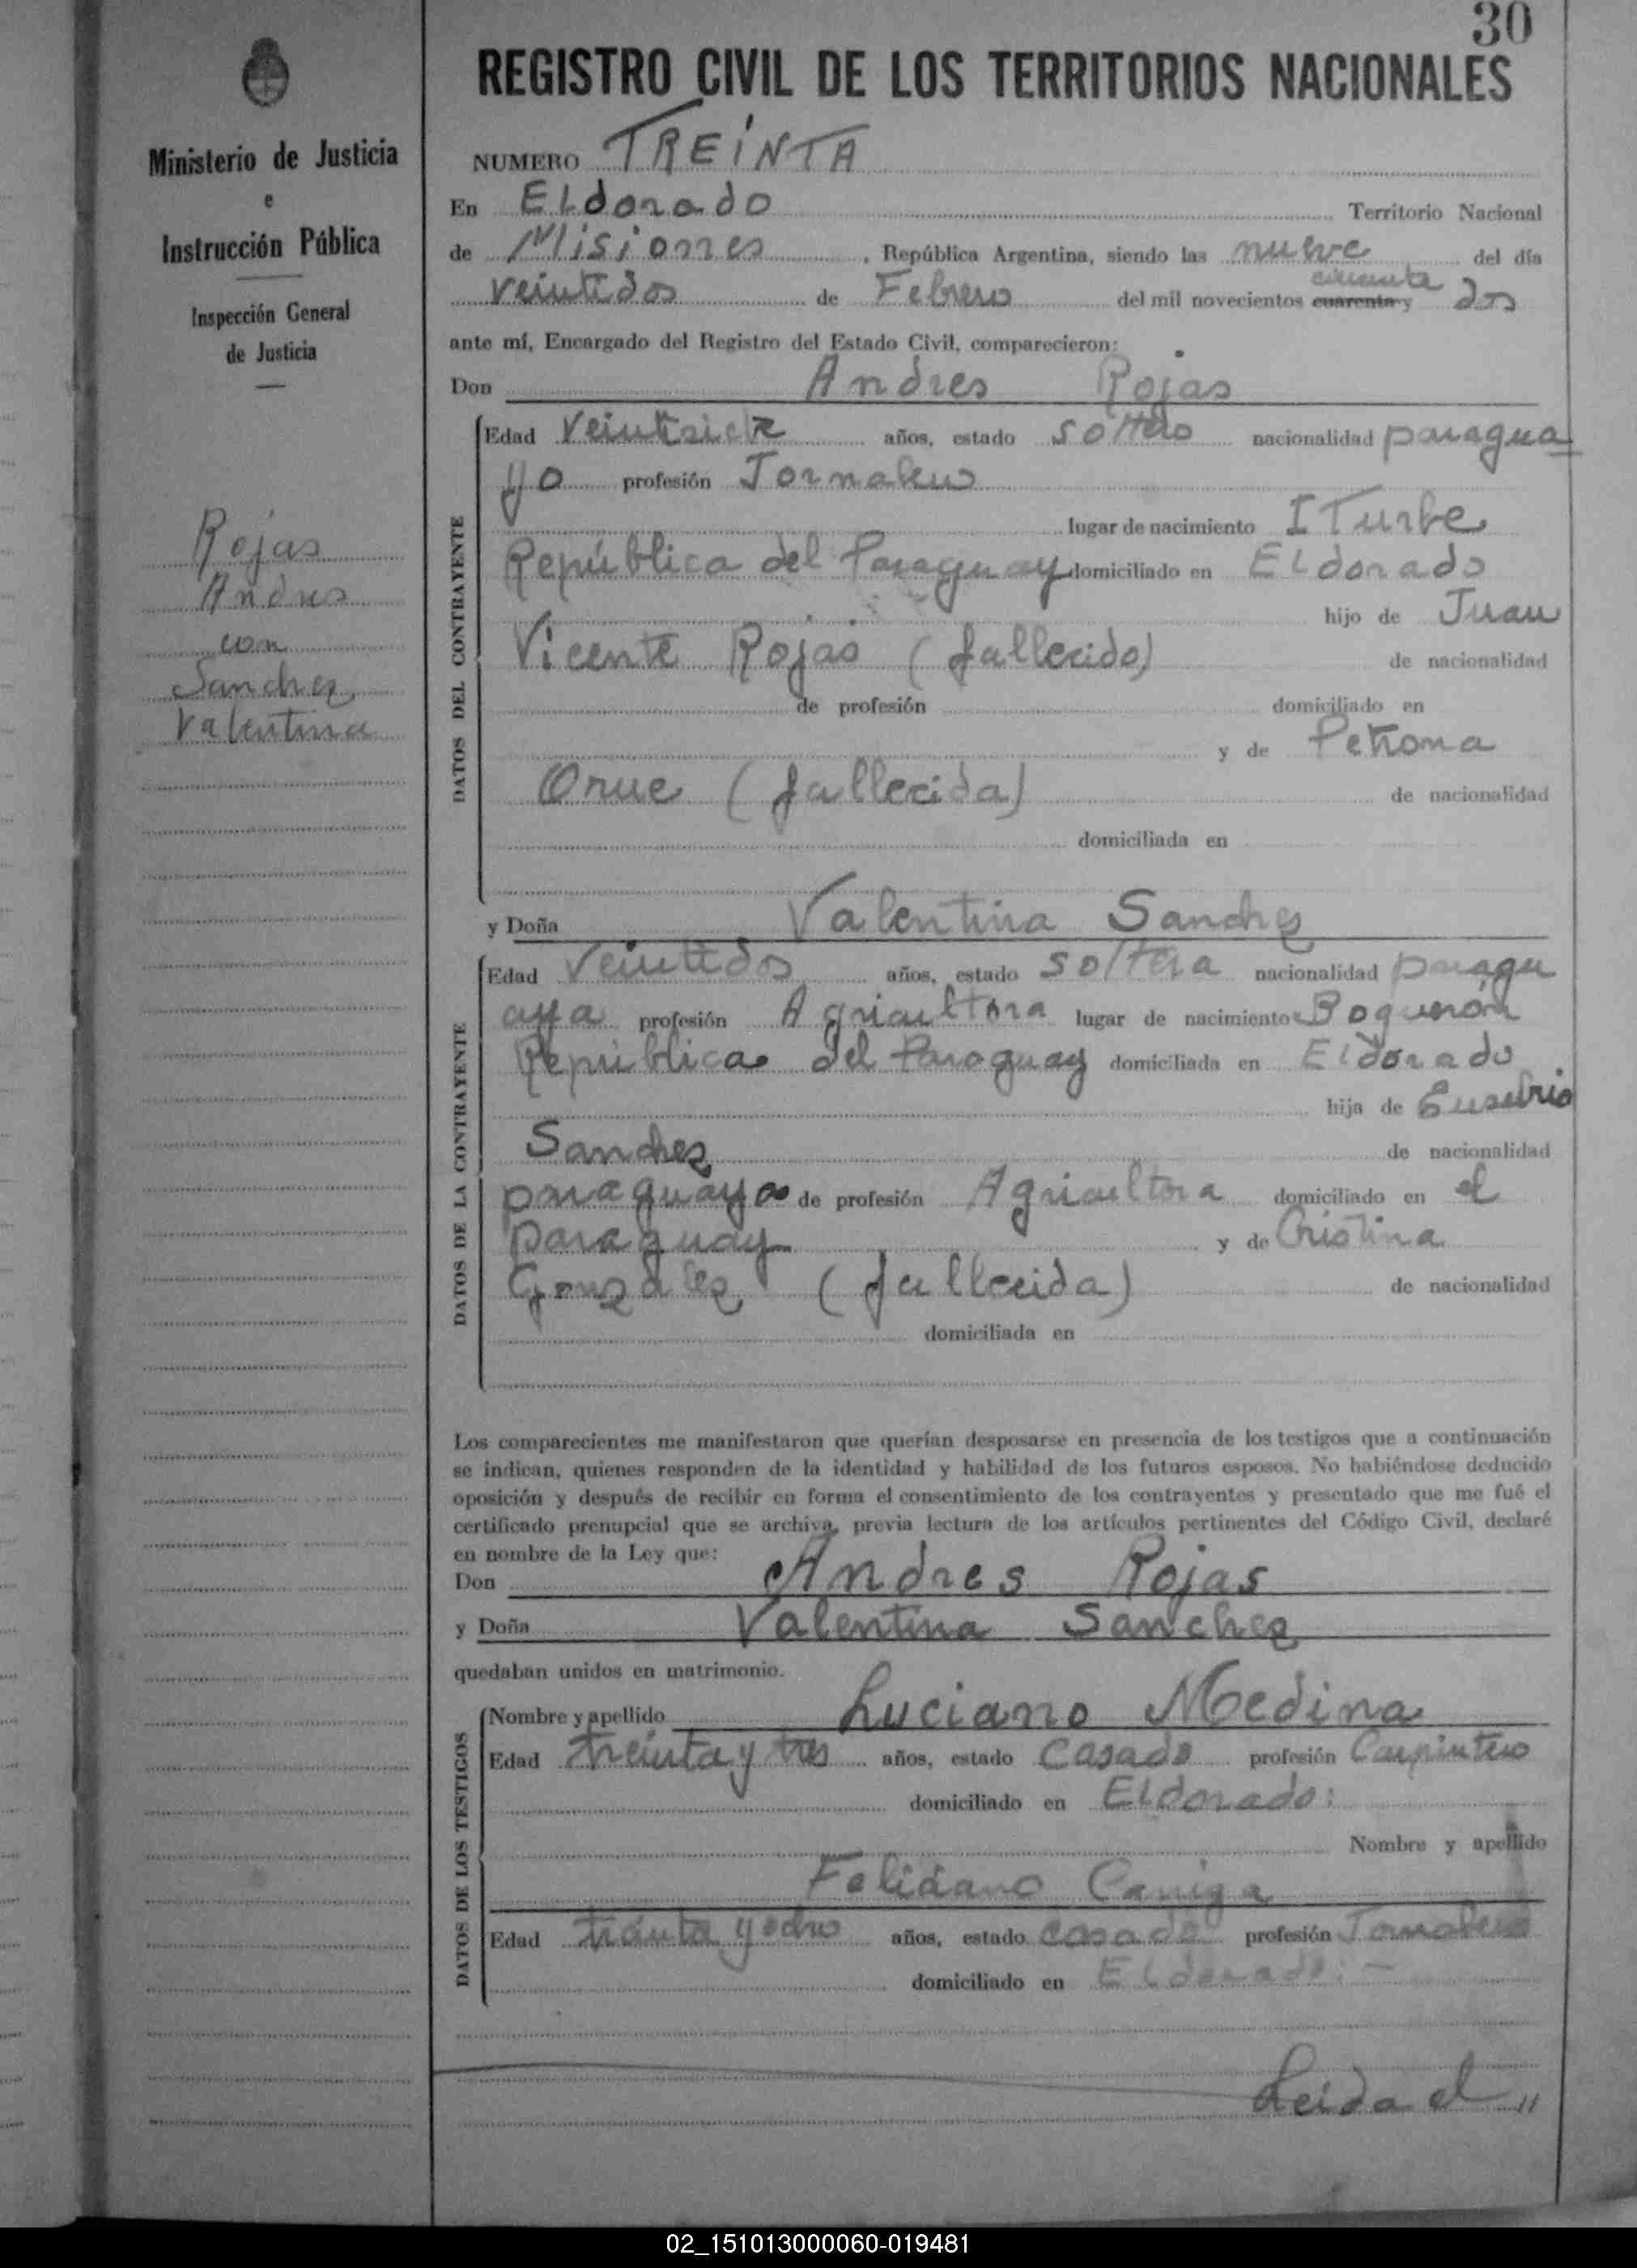 30
REGISTRO CIVIL DE LOS TERRITORIOS NACIONALES
Ministerio de Justicia
e
Instrucción Pública
Inspección General
de Justicia
Rojas
Andres
con
Sanchez
Valentina
NUMERO TREINTA
En ELdorado Territorio Nacional
de Misiones, República Argentina, siendo las nueve del día
veintidos de Febrero del mil novecientos cuarenta y cincuenta dos
ante mí, Encargado del Registro del Estado Civil, comparecieron:
Don Andres Rojas
DATOS DEL CONTRAYENTE
Edad veintisiete años, estado soltero nacionalidad paragua
yo profesión Jornalero
lugar de nacimiento ITurbe
República del Paraguay domiciliado en ELdorado
hijo de Juan
Vicente Rojas (fallecido) de nacionalidad
de profesión domiciliado en
y de Petrona
Orue (fallecida) de nacionalidad
domiciliada en
y Doña Valentina Sanchez
DATOS DE LA CONTRAYENTE
Edad veintidos años, estado soltera nacionalidad paragu
aya profesión Agricultora lugar de nacimiento Boquerón
República del Paraguay domiciliada en ELdorado
hija de Eusebio
Sanchez de nacionalidad
paraguayo de profesión Agricultora domiciliado en el
paraguay y de Cristina
Gonzalez (fallecida) de nacionalidad
domiciliada en
Los comparecientes me manifestaron que querían desposarse en presencia de los testigos que a continuación
se indican, quienes responden de la identidad y habilidad de los futuros esposos. No habiéndose deducido
oposición y después de recibir en forma el consentimiento de los contrayentes y presentado que me fué el
certificado prenupcial que se archiva, previa lectura de los artículos pertinentes del Código Civil, declaré
en nombre de la Ley que:
Don Andres Rojas
y Doña Valentina Sanchez
quedaban unidos en matrimonio.
DATOS DE LOS TESTIGOS
Nombre y apellido Luciano Medina
Edad treinta y tres años, estado casado profesión Carpintero
domiciliado en ELdorado:
Nombre y apellido
Feliciano
Edad treinta y ocho años, estado casado profesión Jornalero
domiciliado en ELdorado:-
Leida el "
02_151013000060-019481